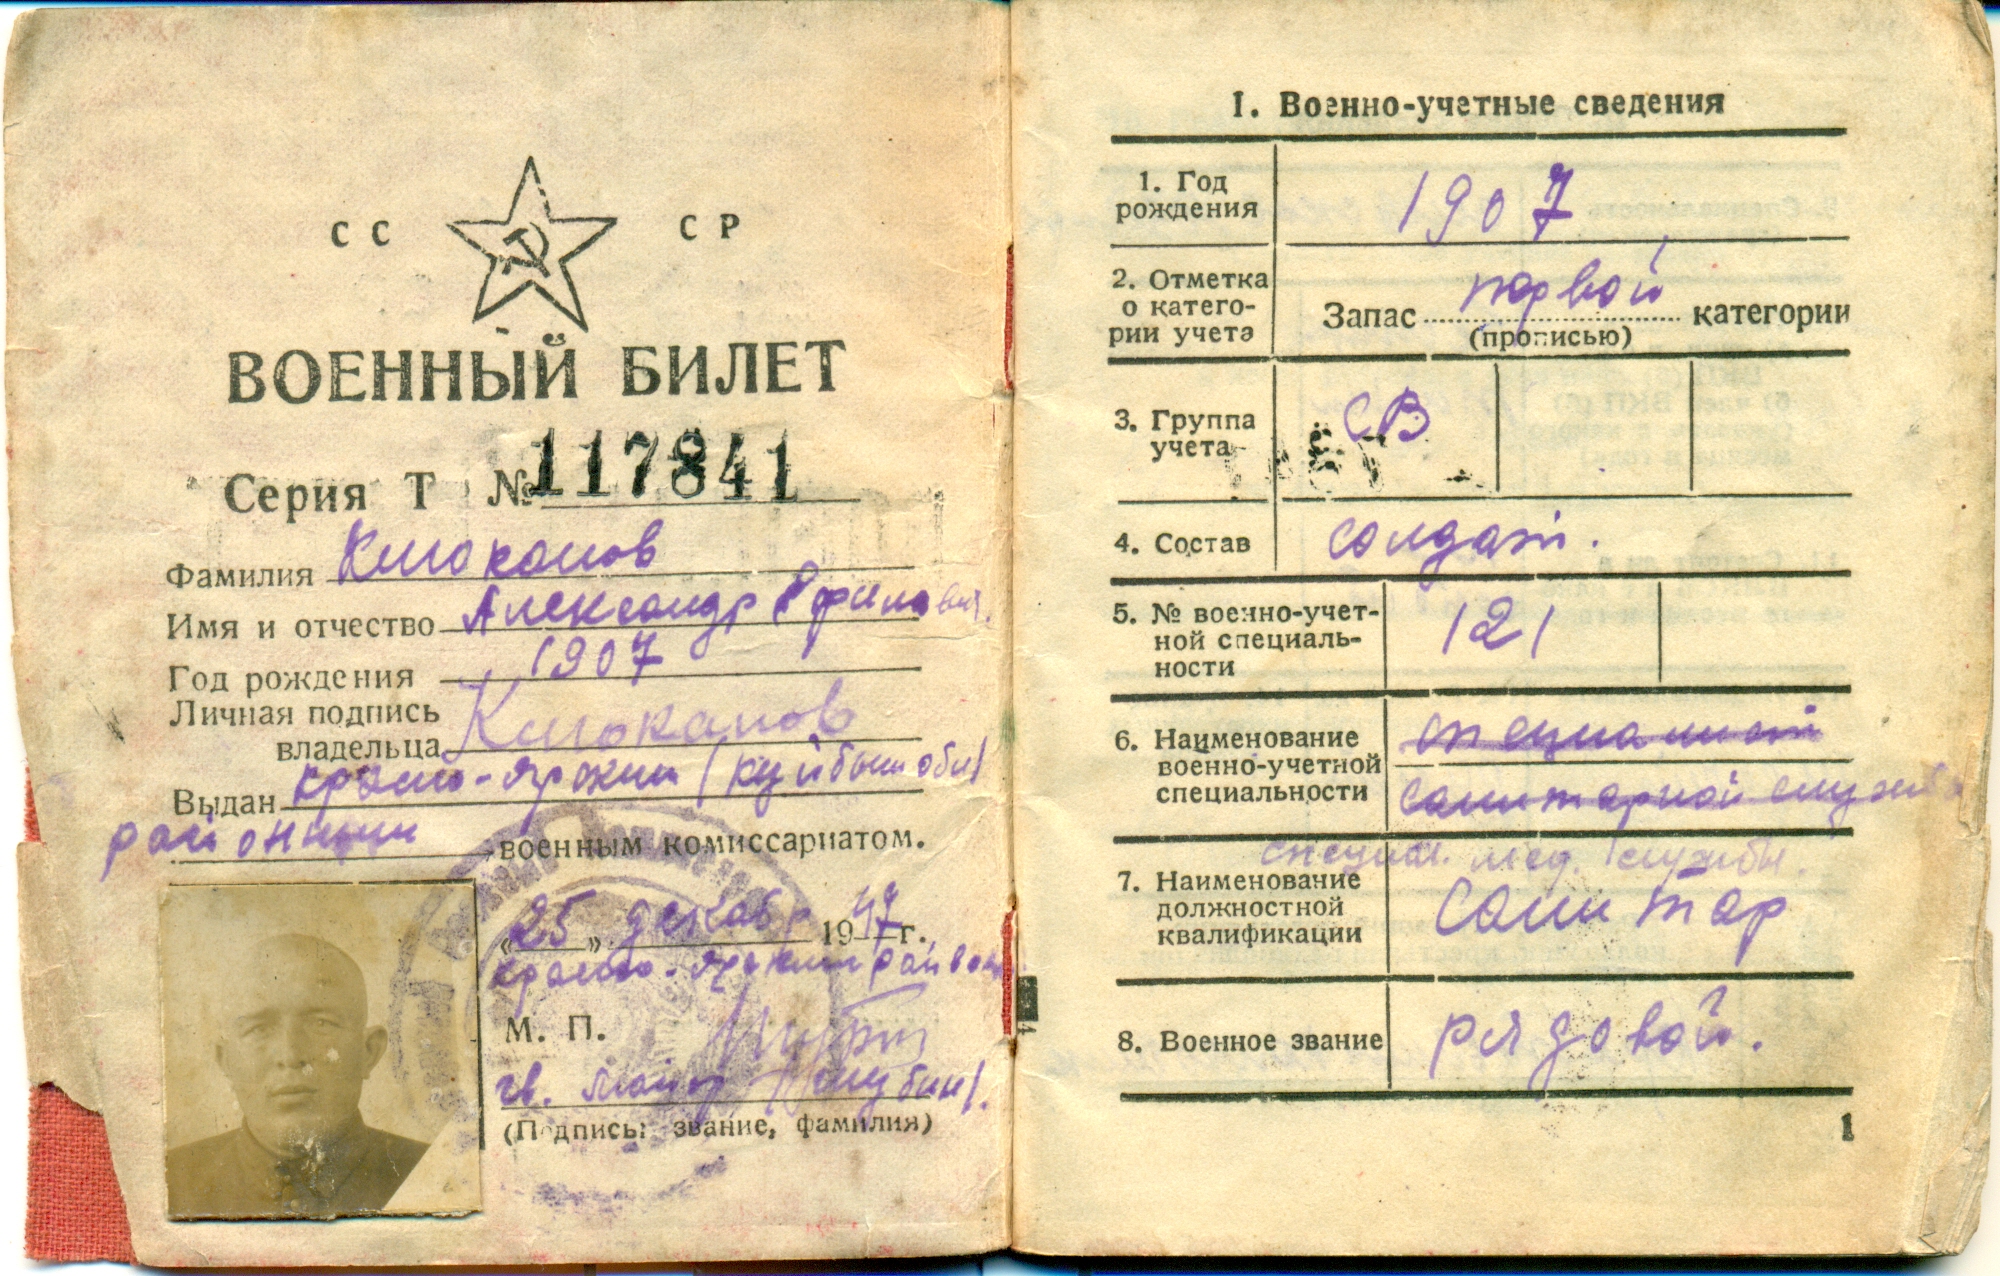 СС СР
ВОЕННЫЙ БИЛЕТ
Серия Т № 117841
Фамилия Клюканов
Имя и отчество Александр
Год рождения 1907
Личная подпись
владельца Клюканов
Выдан Красно-Ярским (Куйбыш обл)
районным военным комиссариатом.
«25» декабр 1947 г.
Красно-Ярский райвоен
М. П.
гв. майор
(Подпись, звание, фамилия)
I. Военно-учетные сведения
1. Год
рождения
1907
2. Отметка
о катего-
рии учета
Запас первой категории
(прописью)
3. Группа
учета
СВ
4. Состав
солдат.
5. № военно-учет-
ной специаль-
ности
121
6. Наименование
военно-учетной
специальности
специалист
санитарной службы
специал. мед. службы.
7. Наименование
должностной
квалификации
Санитар
8. Военное звание
рядовой.
1